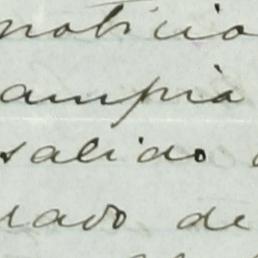 noticia
ampia
salido
rado de